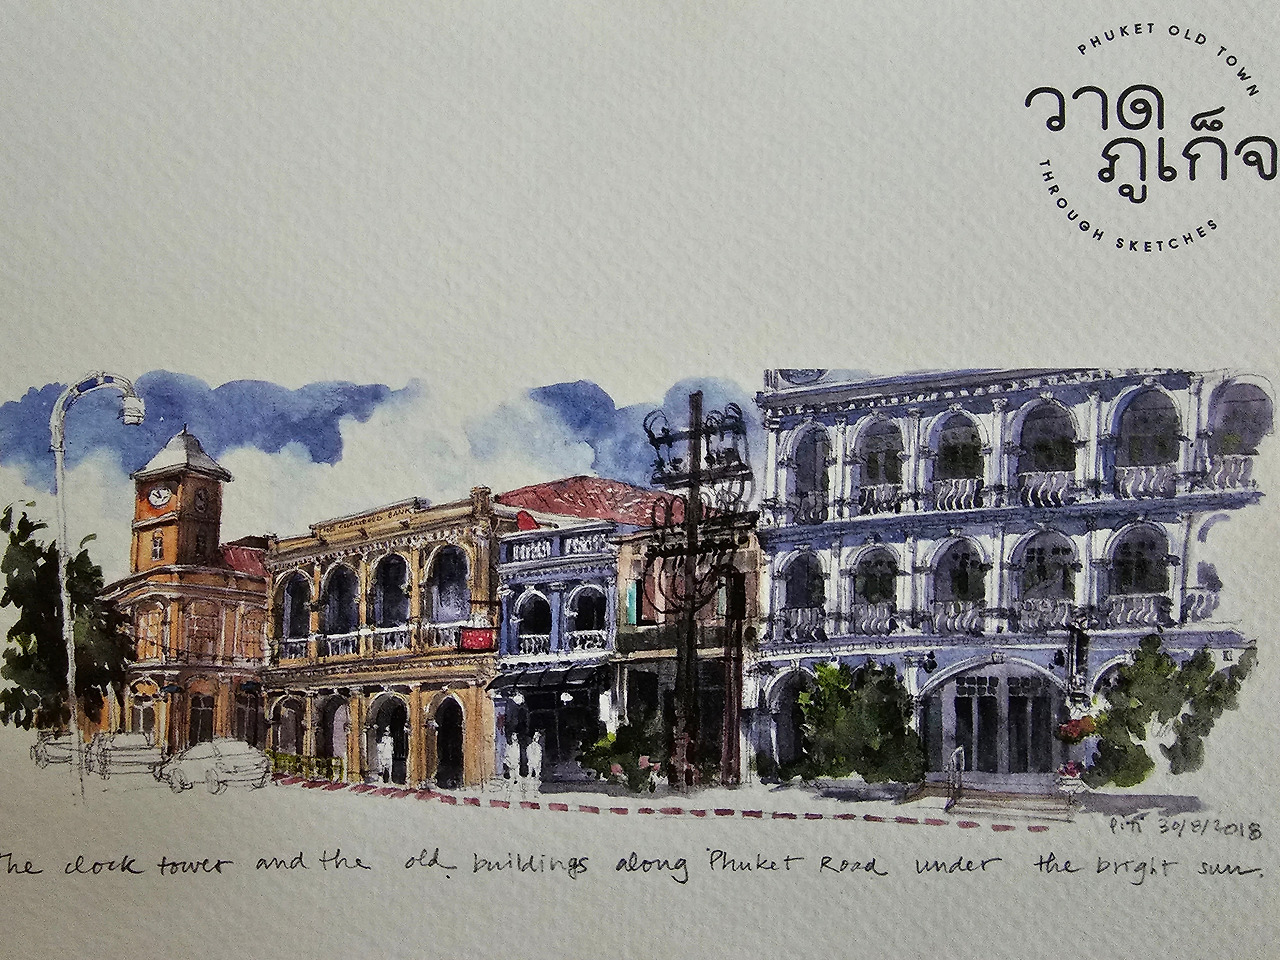 PHUKET OLD TOWN
วาด
ภูเก็จ
THROUGH SKETCHES
CHARTERED BANK
Piti 30/8/2018
The clock tower and the old buildings along Phuket Road under the bright sun.